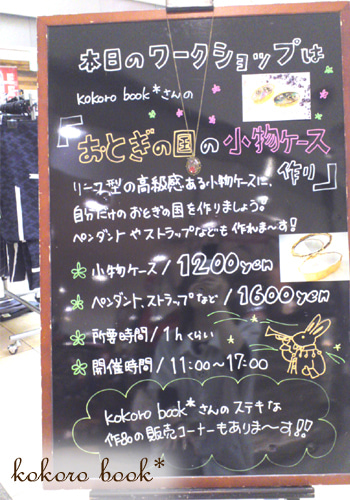 本日のワークショップは
kokoro book*さんの
「おとぎの国の小物ケース
作り」
リーフ型の高級感ある小物ケースに、
自分だけのおとぎの国を作りましょう!
ペンダントやストラップなども作れま〜す!
小物ケース/1200yen
ペンダント、ストラップなど/1600yen
所要時間/1hくらい
開催時間/11:00〜17:00
kokoro book*さんのステキな
作品の販売コーナーもありま〜す!!
kokoro book*